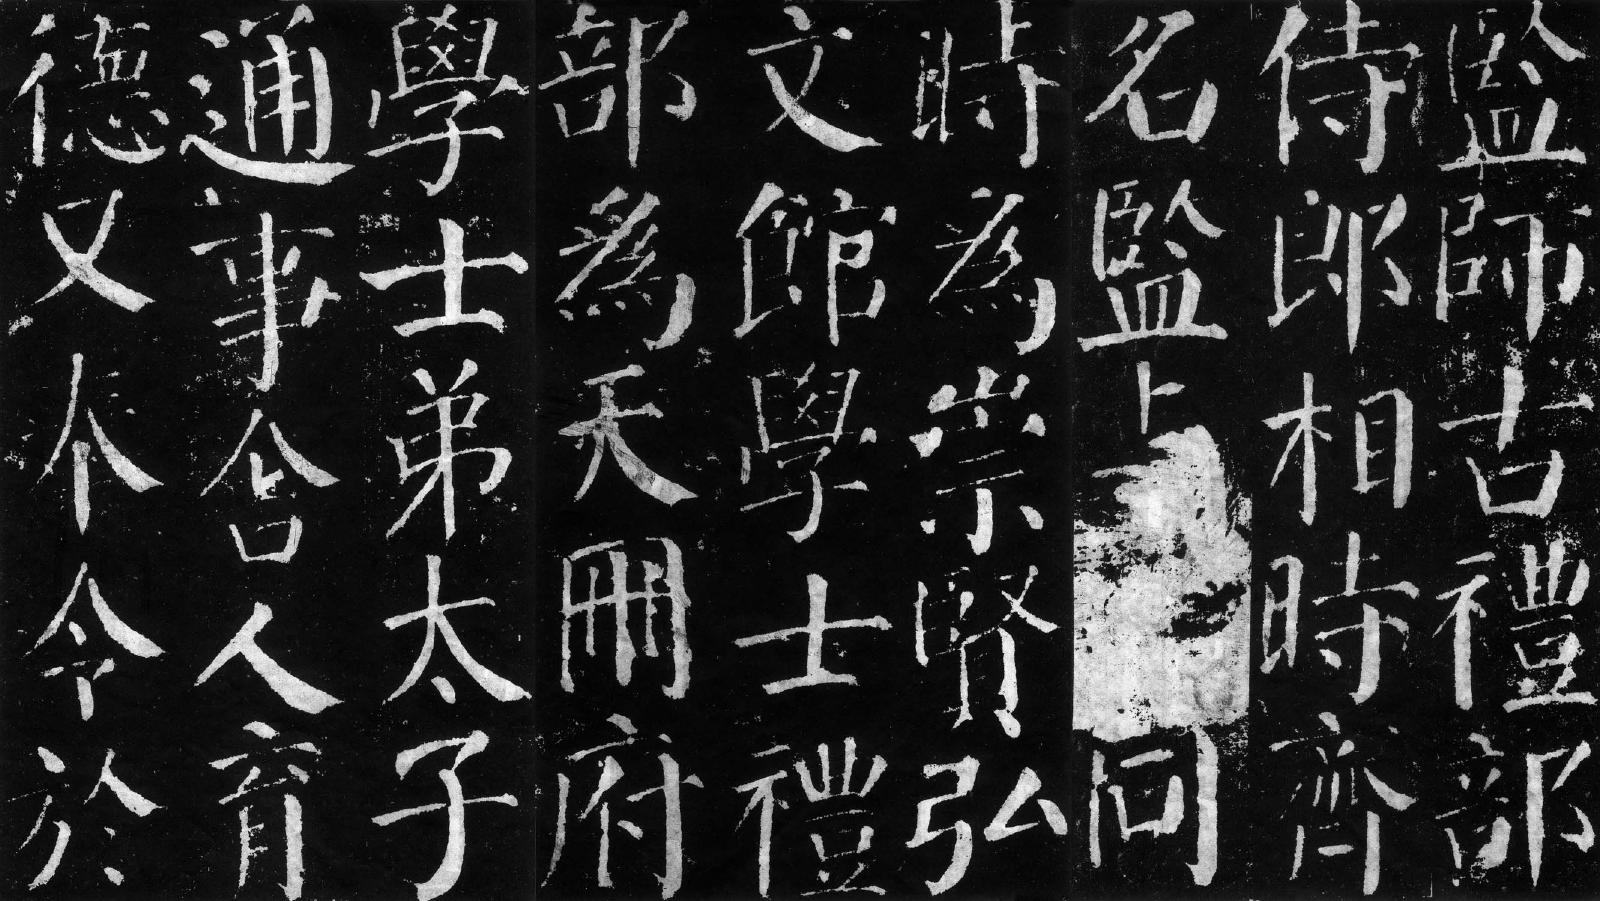 監師古禮部
侍郎相時齊
名監同
時為崇賢弘
文館學士禮
部爲天冊府
學士弟太子
通事舍人育
德又奉令於